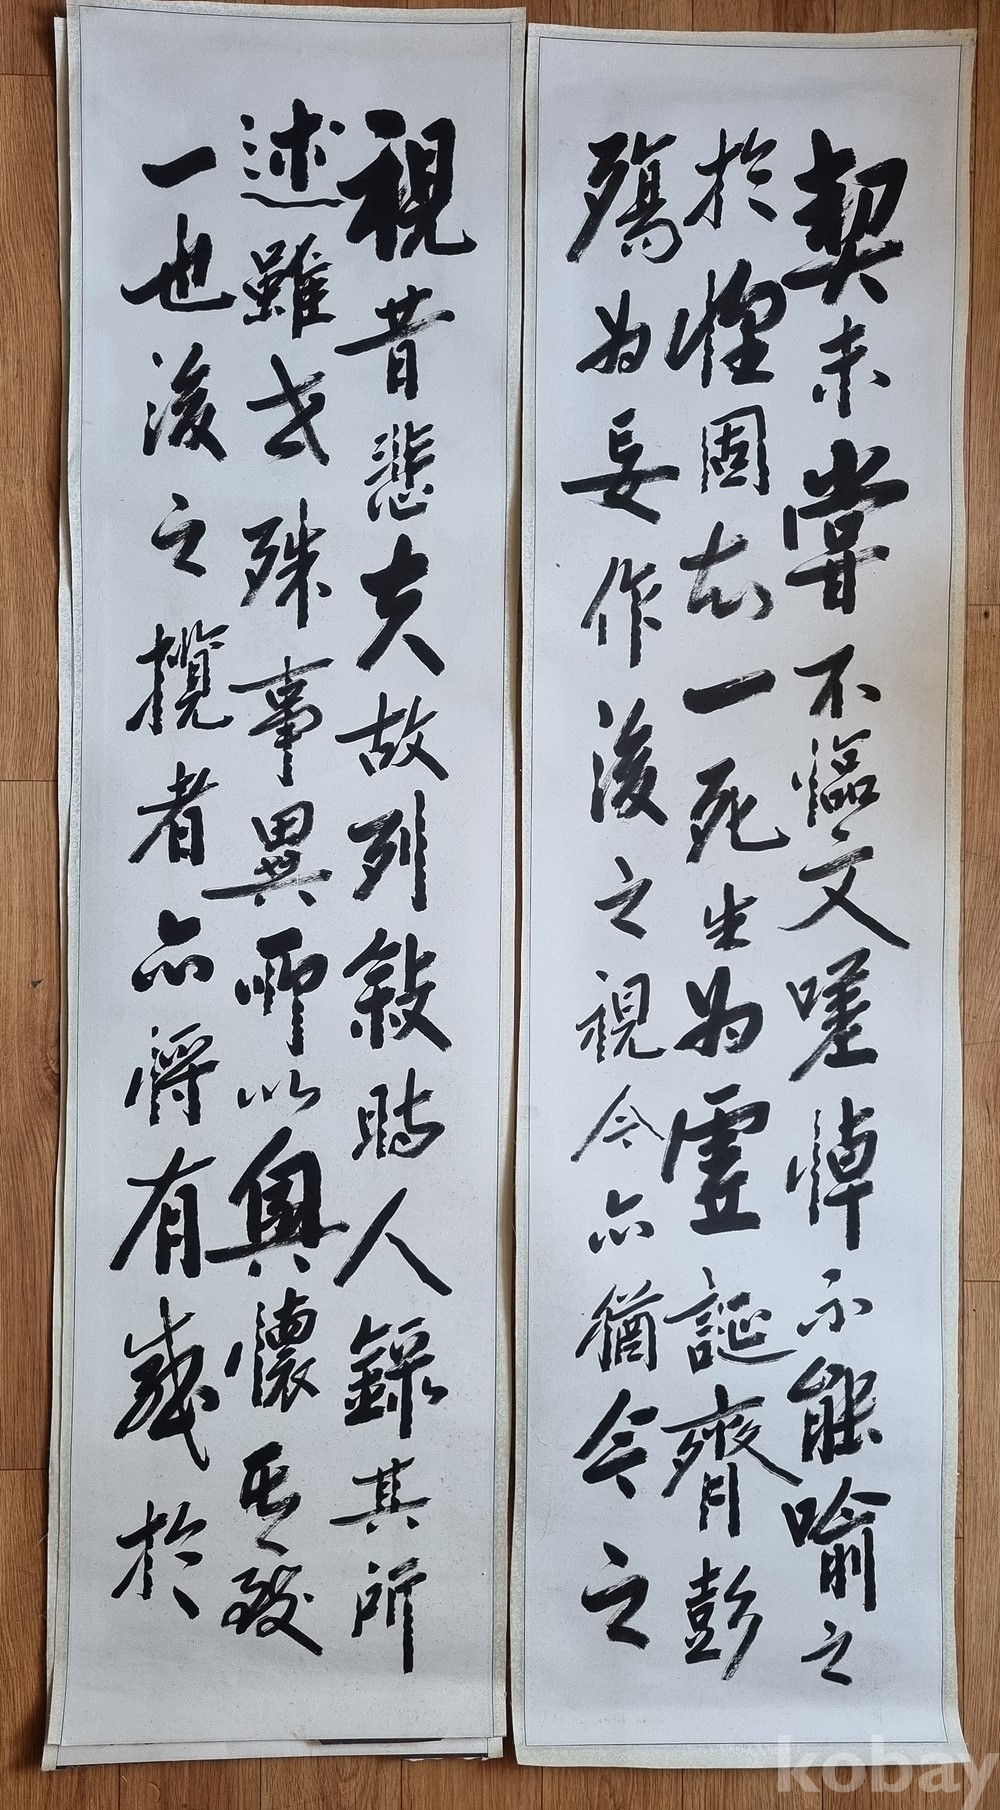 契未嘗不臨文嗟悼不能喻之
於懷固知一死生為虛誕齊彭
殤為妄作後之視今亦猶今之
視昔悲夫故列敘時人錄其所
述雖世殊事異所以興懷其致
一也後之攬者亦將有感於
kobay